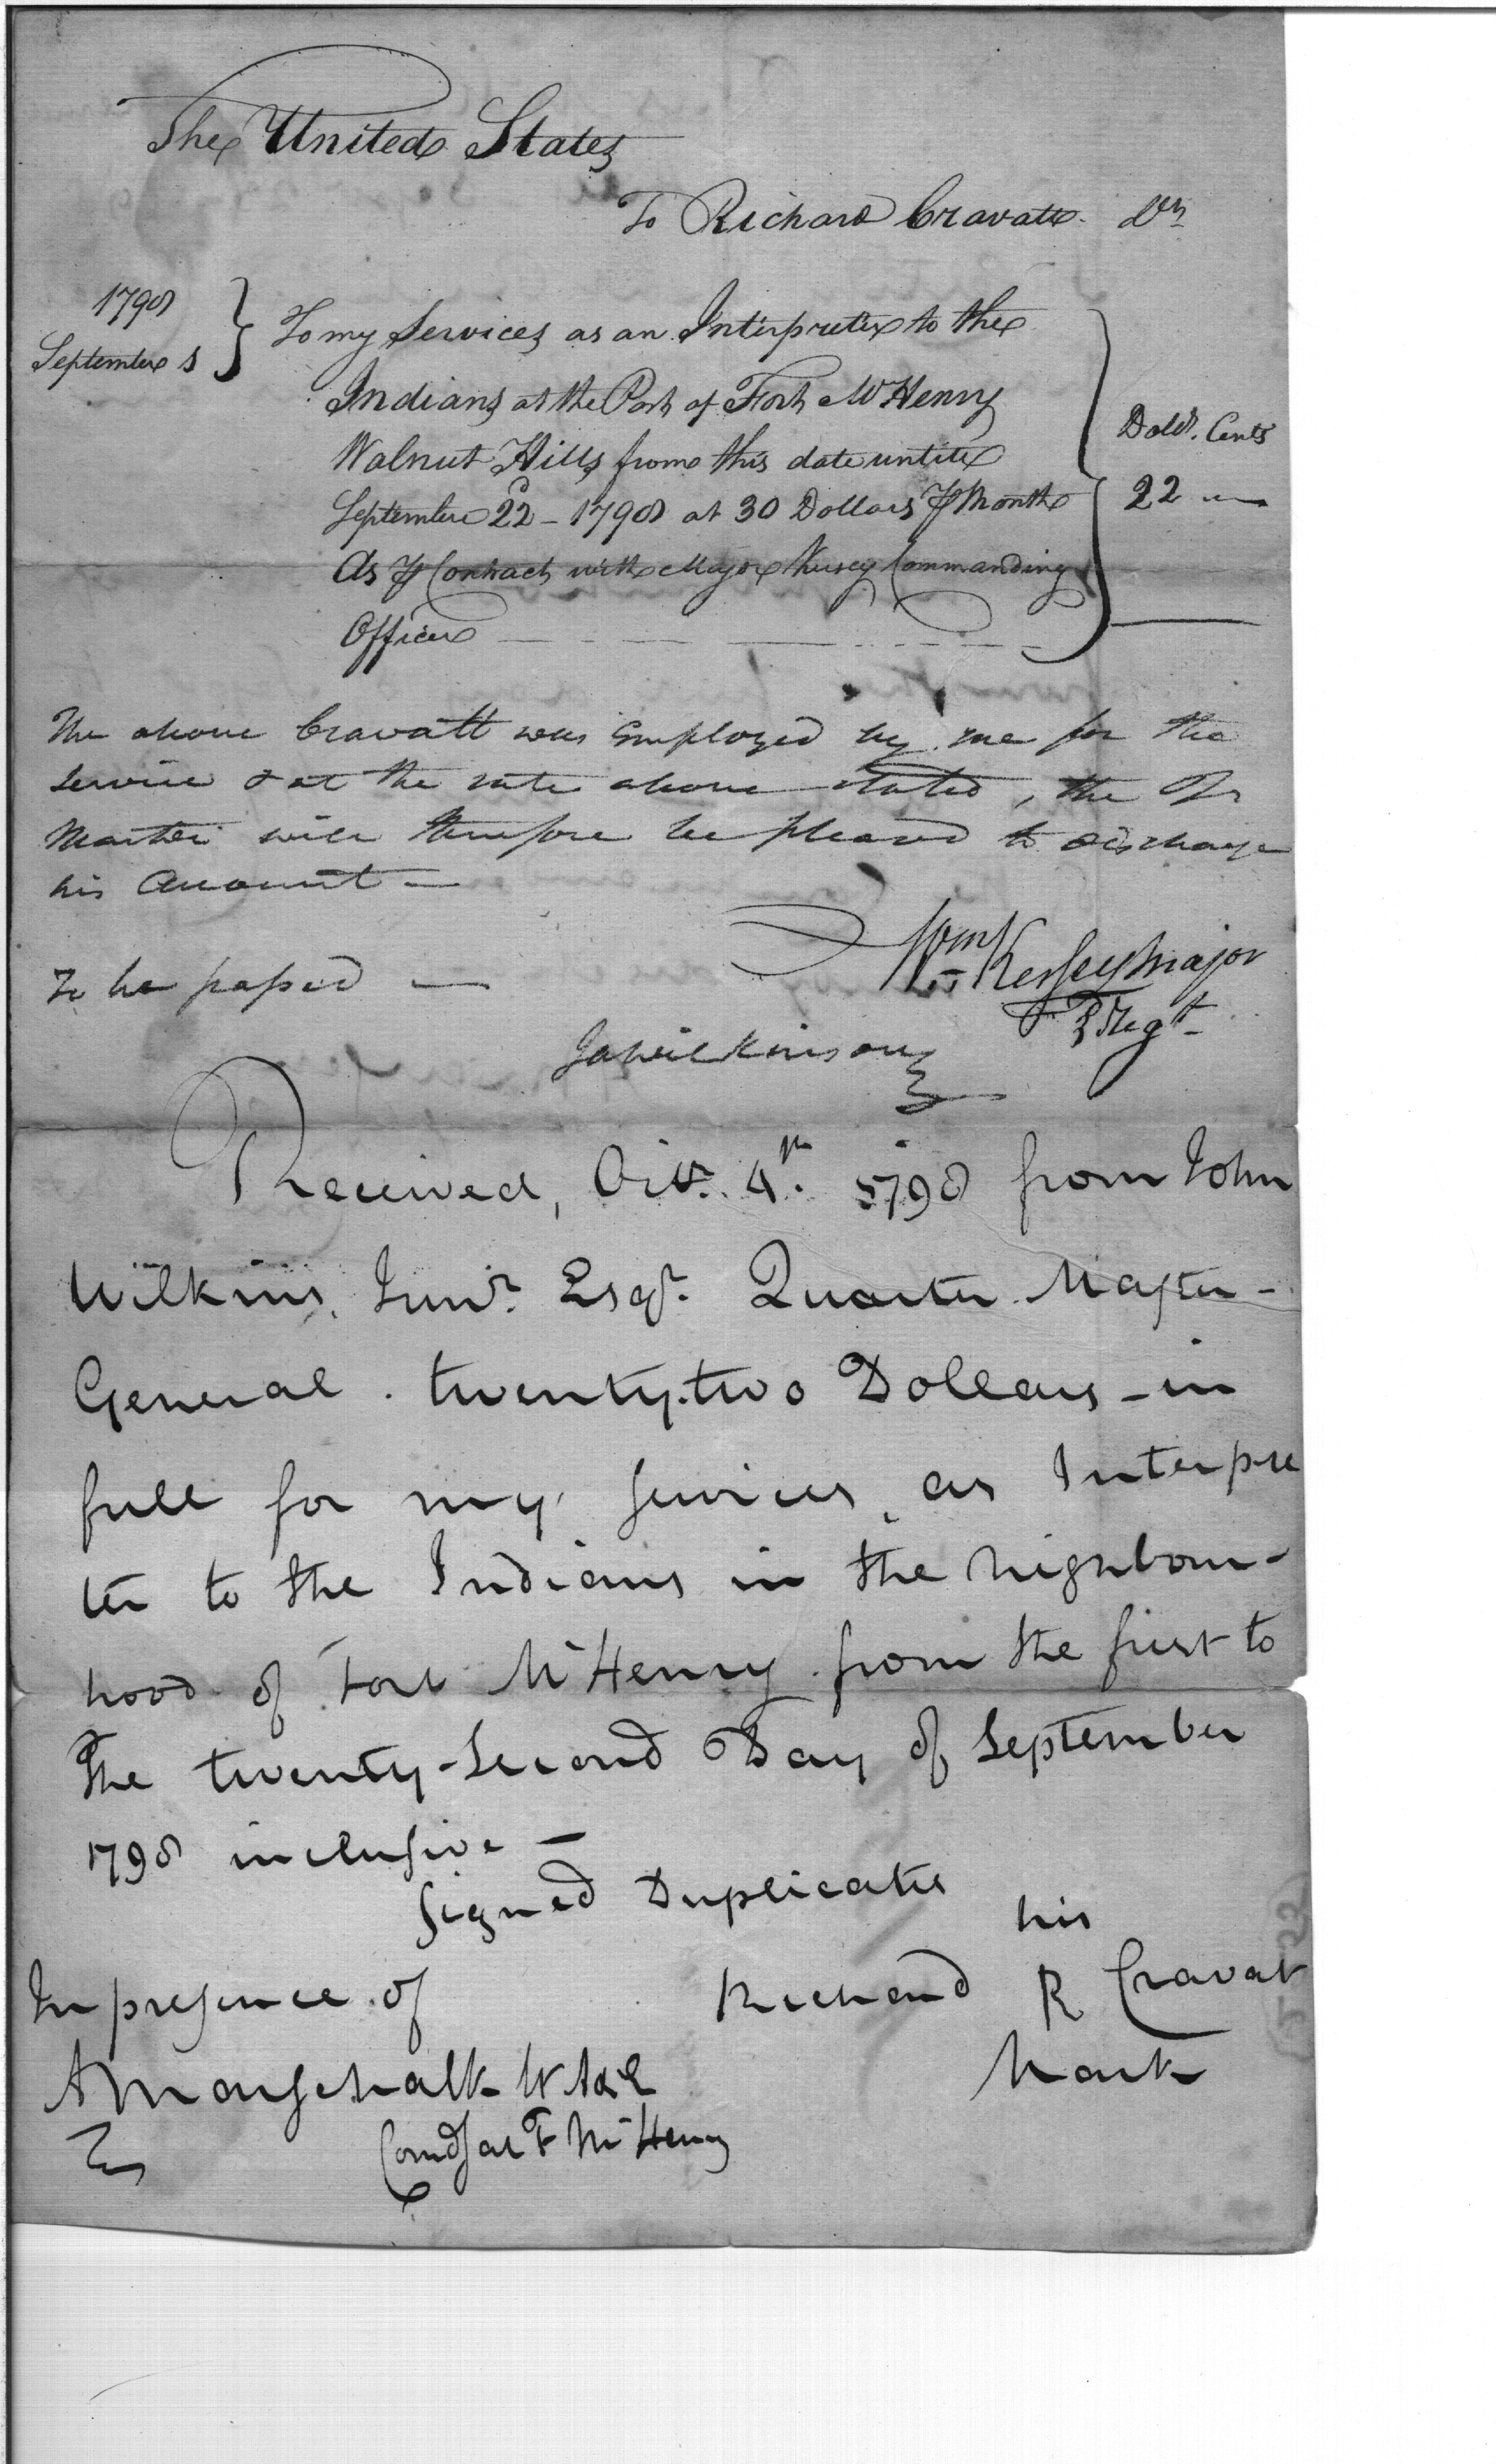 The United States
To Richard Cravatt Dr
1798
September 1
To my Services as an Interpreter to the
Indians at the Post of Fort McHenry
Walnut Hills from this date untill
September 22d - 1798 at 30 Dollars pr Month
As pr Contract with Major Kersey Commanding
Officer
Dolls. Cents
22 —
The above Cravatt was Employed by me for the
service & at the rate above stated, the Qr
Master will therefore be pleased to discharge
his Account —
Wm Kersey Major
3 Regt
To be passed —
Ja Wilkinson
Received, Octr. 4th. 1798 from John
Wilkins, Junr. Esqr. Quarter Master -
General twenty-two Dollars - in
full for my services as Interpre
ter to the Indians in the neighbour-
hood of Fort McHenry from the first to
the twenty-second Day of September
1798 inclusive —
Signed Duplicates
In presence of
his
Richard R Cravat
Mark
A Marschalk Lt A&E
Comdt at F McHenry